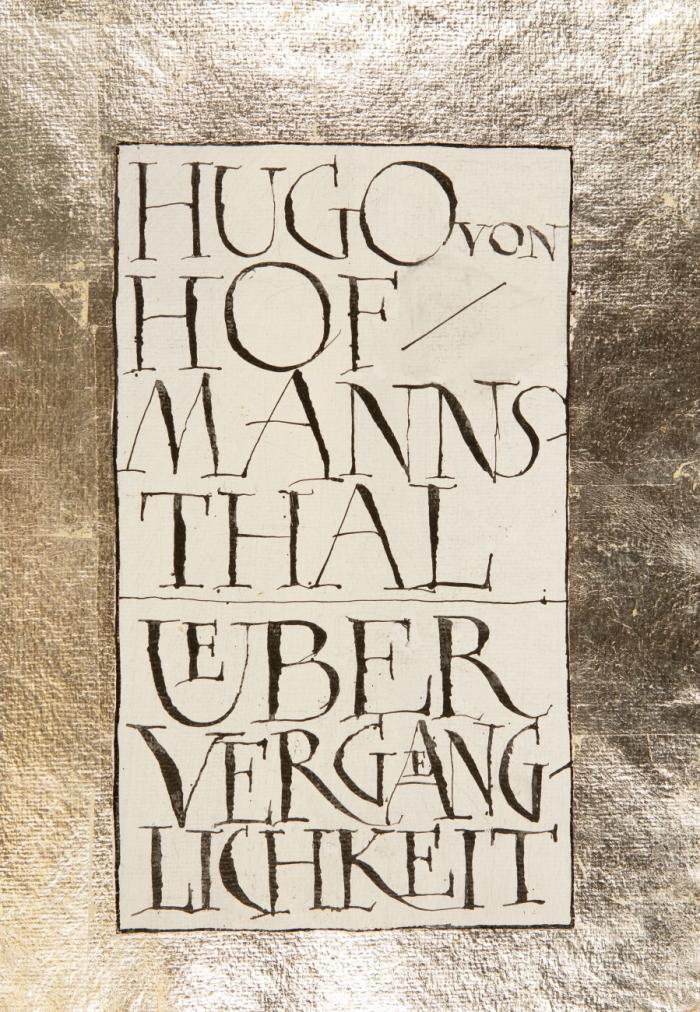 HUGO VON
HOF/
MANNS-
THAL
UEBER
VERGAENG-
LICHKEIT